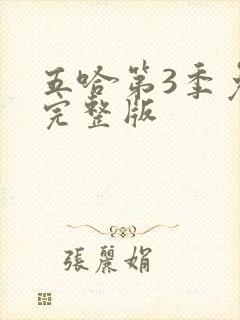 五哈第3季免
完整版
張麗娟